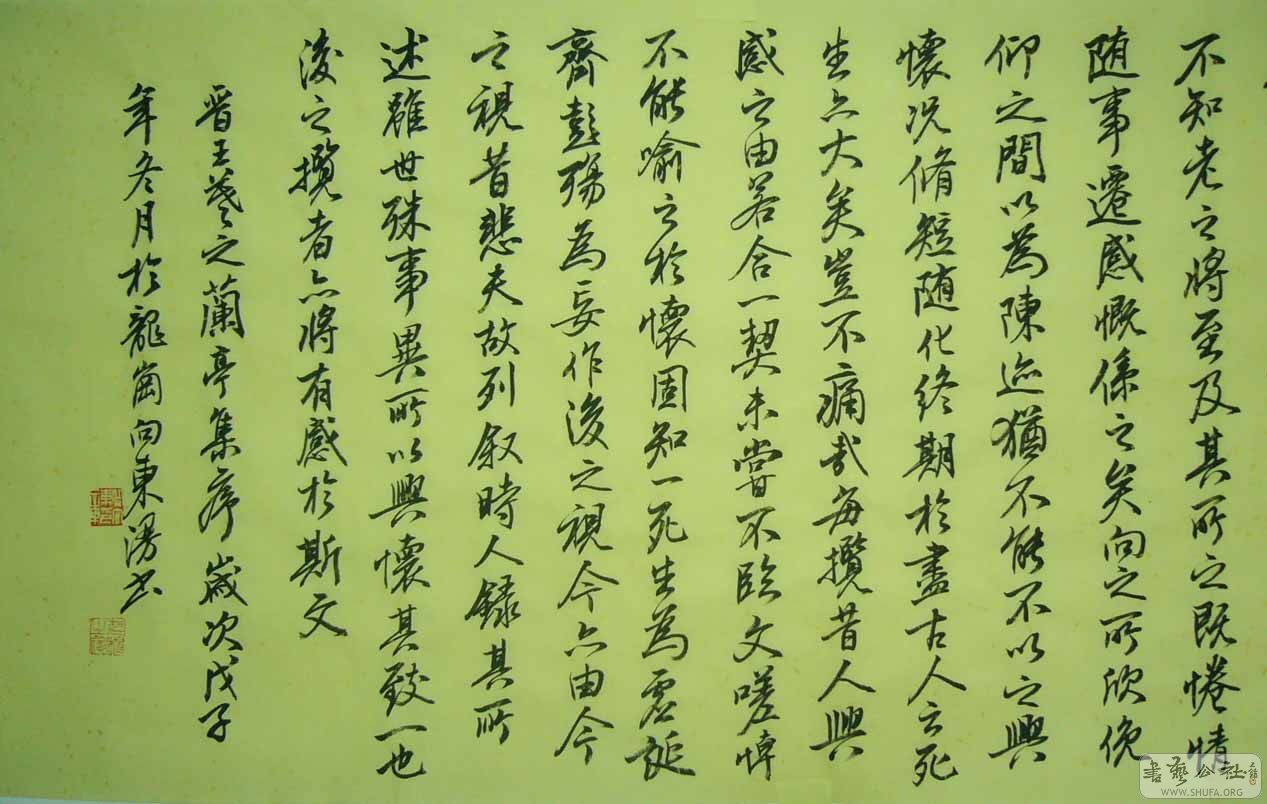 不知老之將至及其所之既惓情
随事遷感慨係之矣向之所欣俛
仰之間以為陳迹猶不能不以之興
懷况脩短随化終期於盡古人云死
生亦大矣豈不痛哉每攬昔人興
感之由若合一契未嘗不臨文嗟悼
不能喻之於懷固知一死生為虛誕
齊彭殤為妄作後之視今亦由今
之視昔悲夫故列叙時人錄其所
述雖世殊事異所以興懷其致一也
後之攬者亦將有感於斯文
晋王羲之蘭亭集序歲次戊子
年冬月於龍崗向東湯書
書藝公社
WWW.SHUFA.ORG